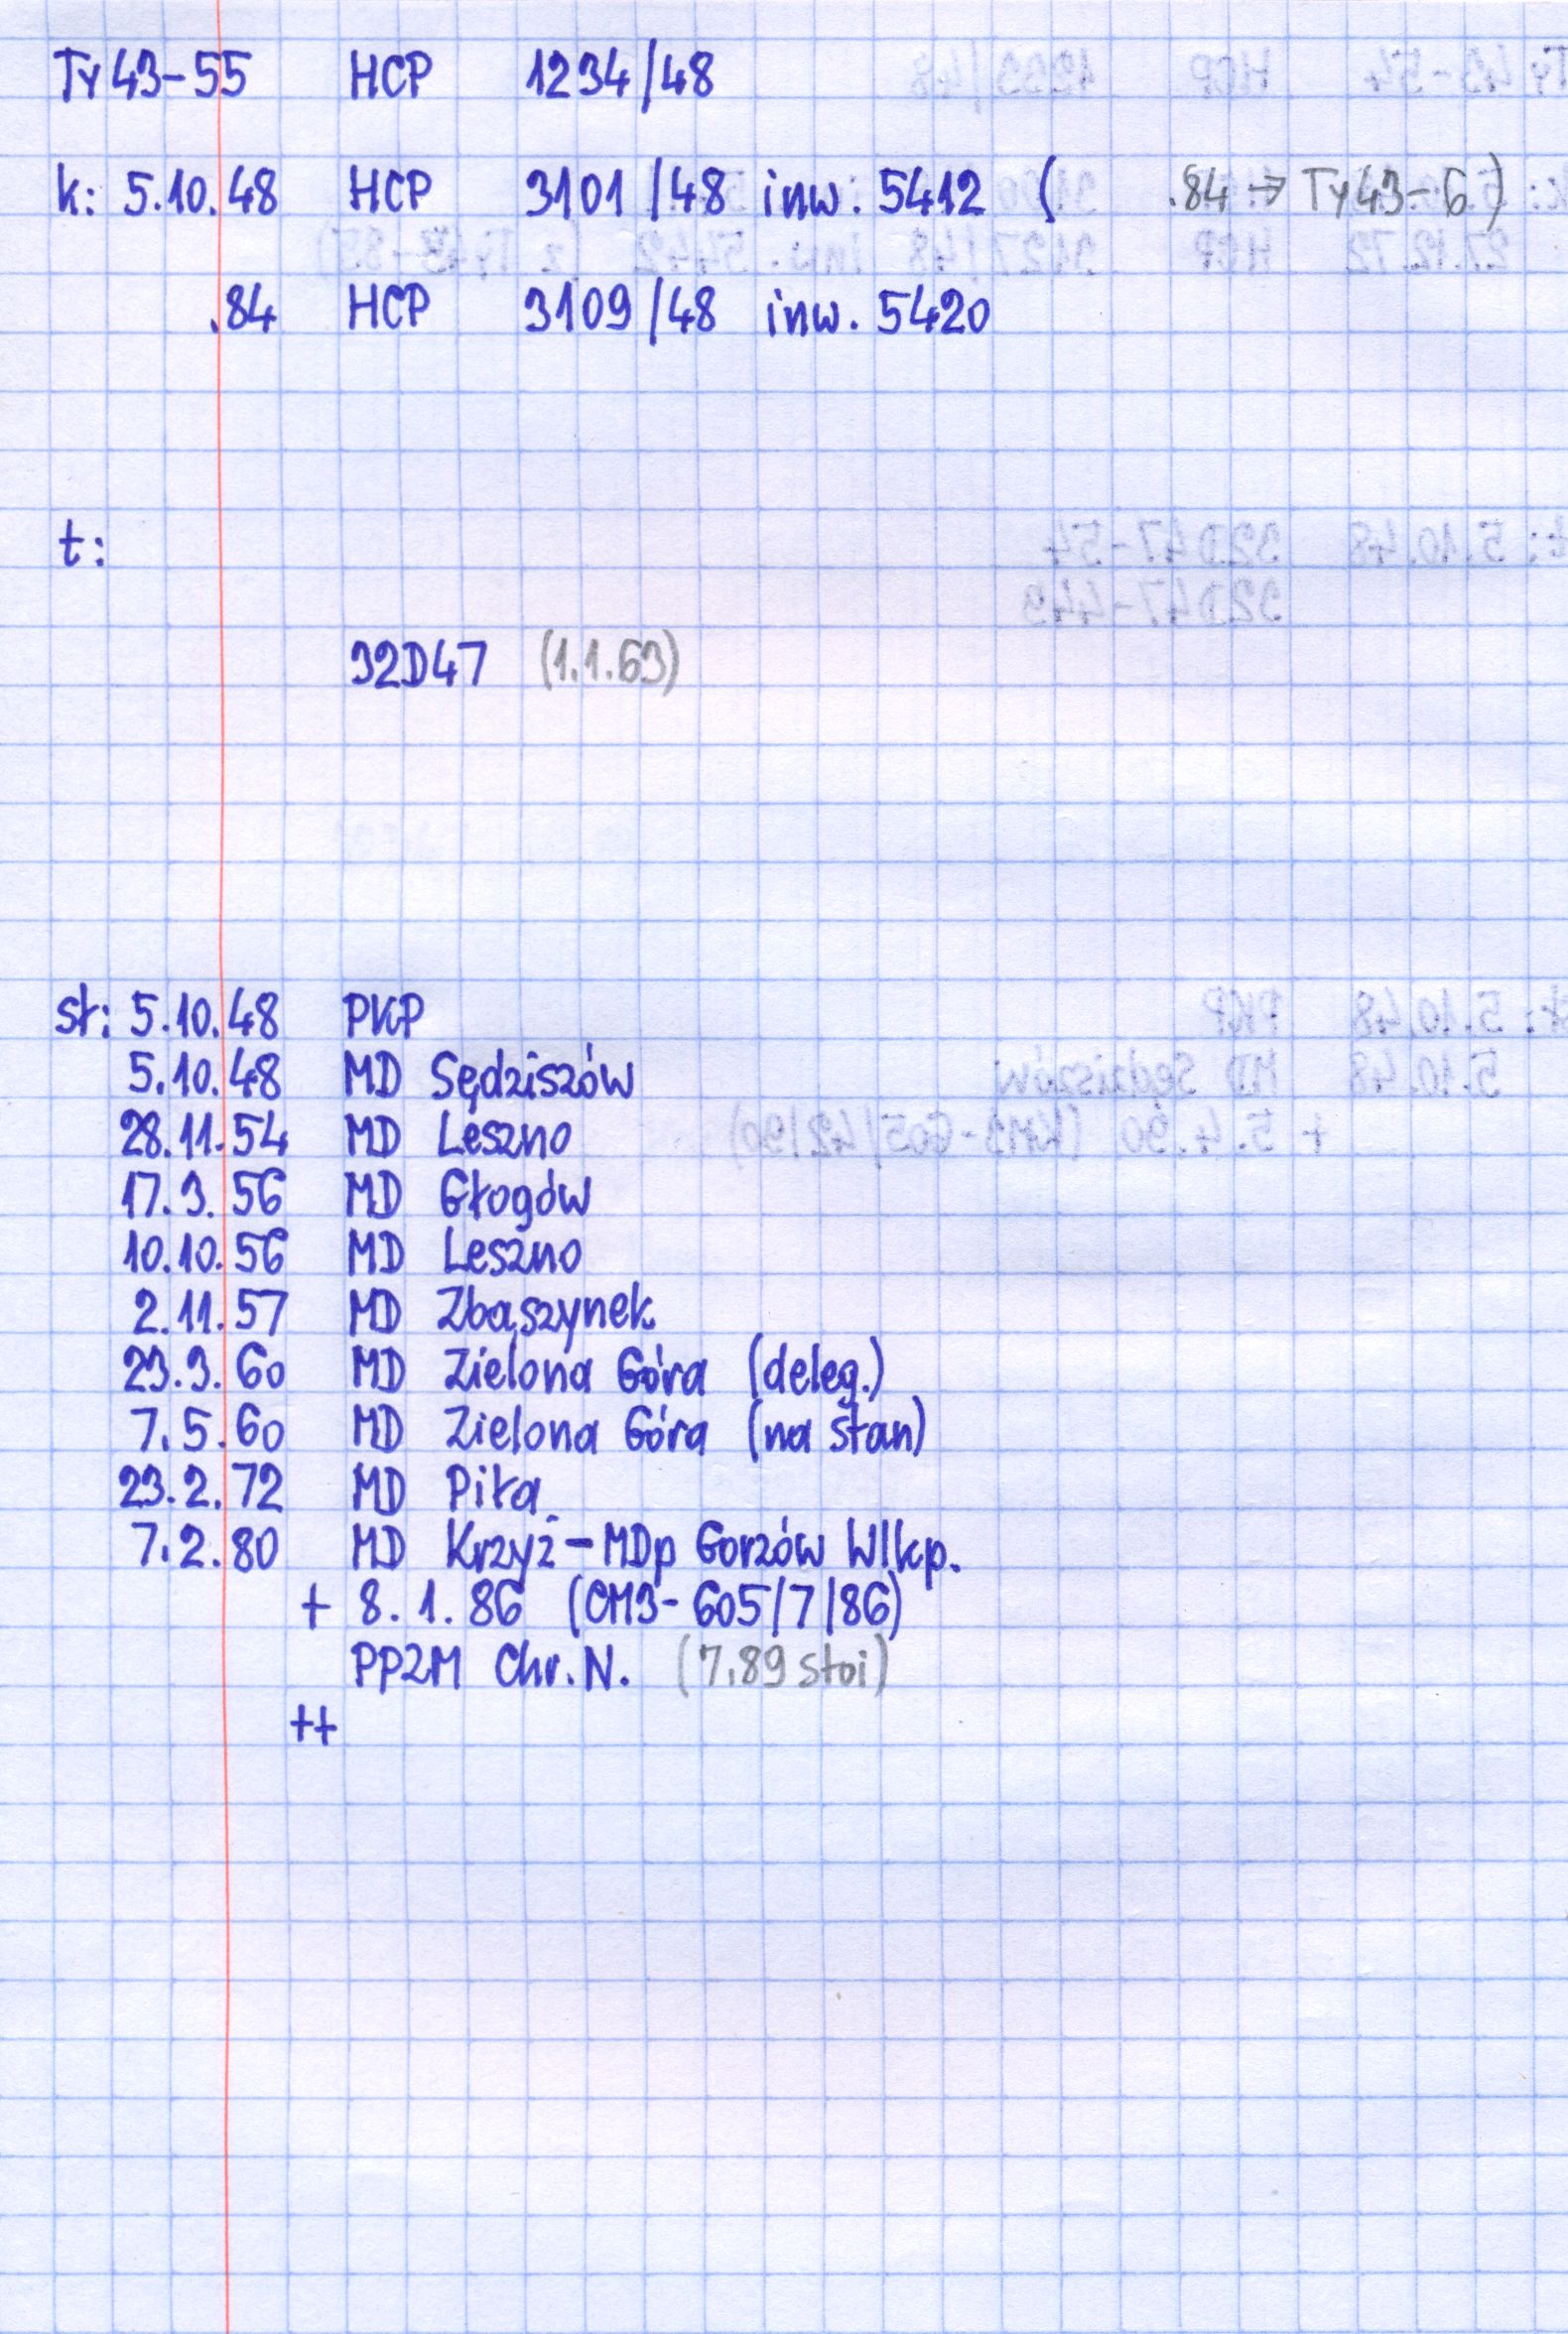 Ty43-55 HCP 1234/48
k: 5.10.48 HCP 3101/48 inw. 5412 ( .84 → Ty43-6)
.84 HCP 3109/48 inw. 5420
t:
32D47 (1.1.63)
st: 5.10.48 PKP
5.10.48 MD Sędziszów
28.11.54 MD Leszno
17.3.56 MD Głogów
10.10.56 MD Leszno
2.11.57 MD Zbąszynek
23.3.60 MD Zielona Góra (deleg.)
7.5.60 MD Zielona Góra (na stan)
23.2.72 MD Piła
7.2.80 MD Krzyż-MDp Gorzów Wlkp.
+ 8.1.86 (CM3-605/7/86)
PPZM Chr.N. (7.89 stoi)
++